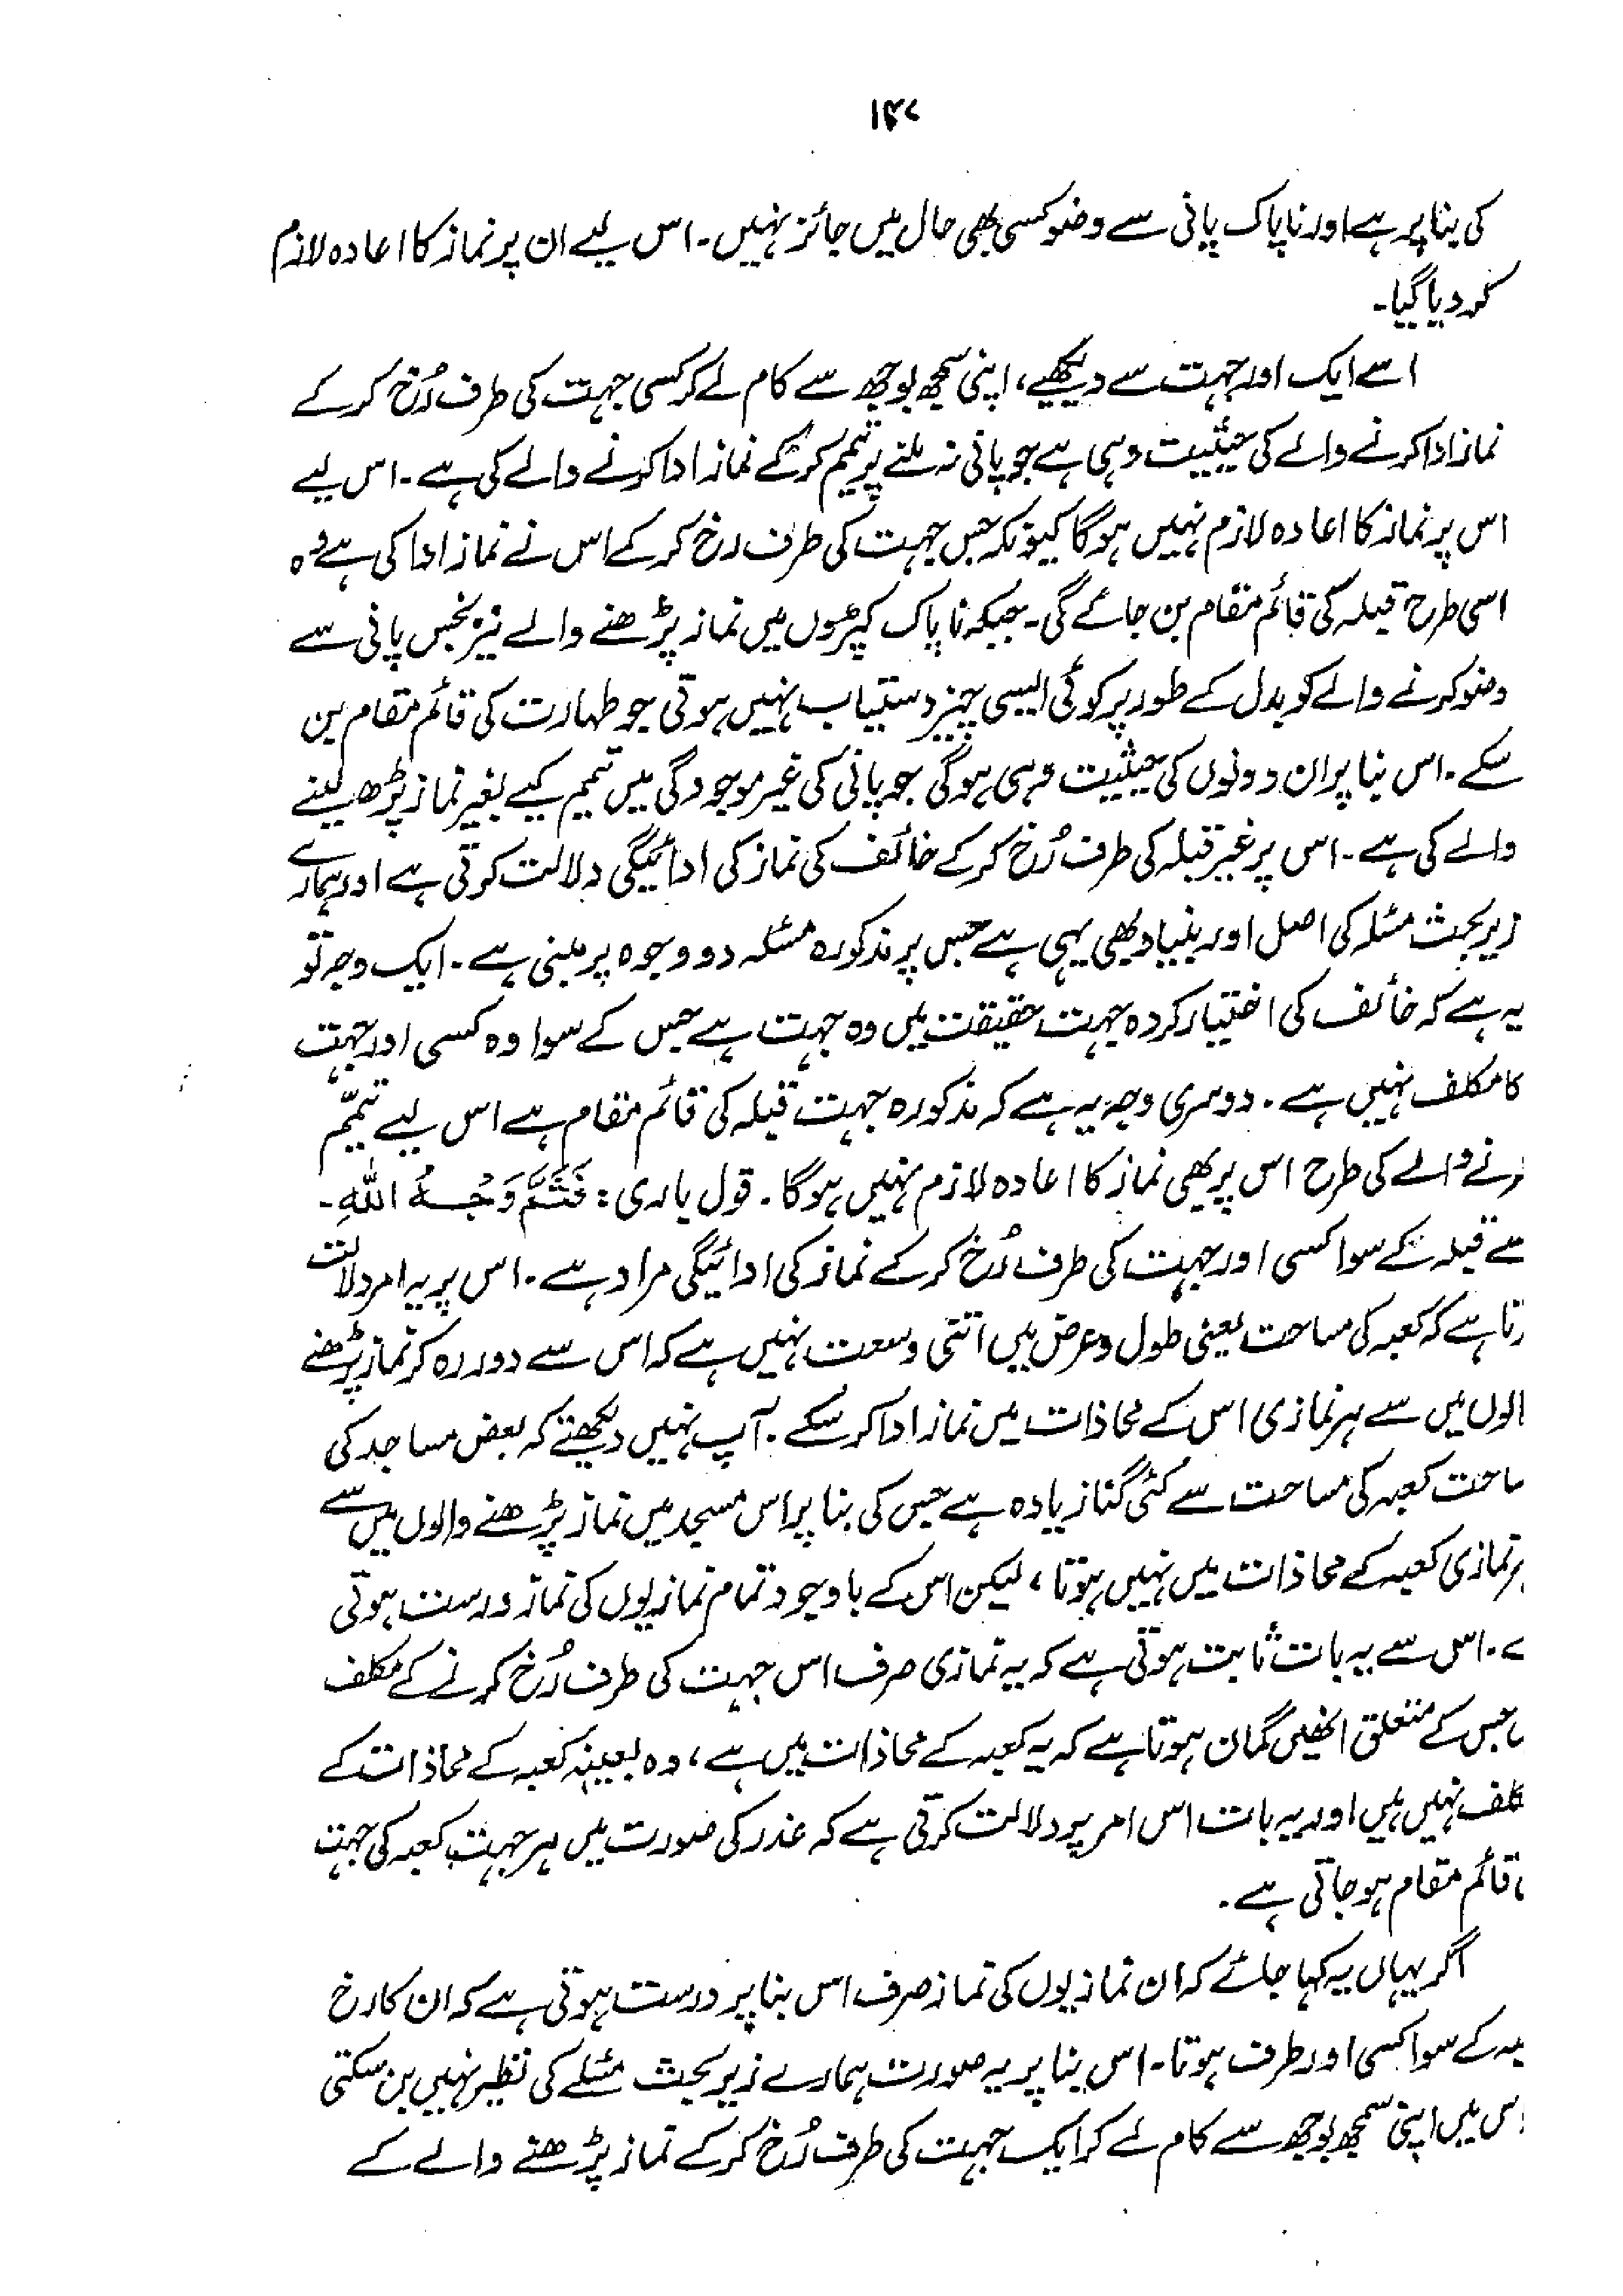 ۱۴۷
کی بنا پر ہے اور ناپاک پانی سے وضو کسی بھی حال میں جائز نہیں۔ اس لیے ان پر نماز کا اعادہ لازم
کر دیا گیا۔
اسے ایک اور جہت سے دیکھیے، اپنی سمجھ بوجھ سے کام لے کر کسی جہت کی طرف رُخ کر کے
نماز ادا کرنے والے کی حیثیت وہی ہے جو پانی نہ ملنے پر تیمم کر کے نماز ادا کرنے والے کی ہے۔ اس لیے
اس پر نماز کا اعادہ لازم نہیں ہوگا کیونکہ جس جہت کی طرف رخ کر کے اس نے نماز ادا کی ہے وہ
اسی طرح قبلہ کی قائم مقام بن جائے گی۔ جبکہ ناپاک کپڑوں میں نماز پڑھنے والے نیز نجس پانی سے
وضو کرنے والے کو بدل کے طور پر کوئی ایسی چیز دستیاب نہیں ہوتی جو طہارت کی قائم مقام بن
سکے۔ اس بنا پر ان دونوں کی حیثیت وہی ہوگی جو پانی کی غیر موجودگی میں تیمم کیے بغیر نماز پڑھ لینے
والے کی ہے۔ اس پر غیر قبلہ کی طرف رُخ کر کے خائف کی نماز کی ادائیگی دلالت کرتی ہے اور ہمارے
زیر بحث مسئلہ کی اصل اور بنیاد بھی یہی ہے جس پر مذکورہ مسئلہ دو وجوہ پر مبنی ہے۔ ایک وجہ تو
یہ ہے کہ خائف کی اختیار کردہ جہت حقیقت میں وہ جہت ہے جس کے سوا وہ کسی اور جہت
کا مکلف نہیں ہے۔ دوسری وجہ یہ ہے کہ مذکورہ جہت قبلہ کی قائم مقام ہے اس لیے تیمّم
رنے والے کی طرح اس پر بھی نماز کا اعادہ لازم نہیں ہوگا۔ قول باری: فَثَمَّ وَجْهُ اللهِ۔
سے قبلہ کے سوا کسی اور جہت کی طرف رُخ کر کے نماز کی ادائیگی مراد ہے۔ اس پر یہ امر دلالت
رتا ہے کہ کعبہ کی مساحت یعنی طول و عرض میں اتنی وسعت نہیں ہے کہ اس سے دور رہ کر نماز پڑھنے
الوں میں سے ہر نمازی اس کے محاذات میں نماز ادا کر سکے۔ آپ نہیں دیکھتے کہ بعض مساجد کی
ساحت کعبہ کی مساحت سے کئی گنا زیادہ ہے جس کی بنا پر اس مسجد میں نماز پڑھنے والوں میں سے
ہر نمازی کعبہ کے محاذات میں نہیں ہوتا، لیکن اس کے باوجود تمام نمازیوں کی نماز درست ہوتی
ے۔ اس سے یہ بات ثابت ہوتی ہے کہ یہ نمازی صرف اس جہت کی طرف رُخ کرنے کے مکلف
ں جس کے متعلق انھیں گمان ہوتا ہے کہ یہ کعبہ کے محاذات میں ہے، وہ بعینہٖ کعبہ کے محاذات کے
کلف نہیں ہیں اور یہ بات اس امر پر دلالت کرتی ہے کہ عذر کی صورت میں ہر جہت کعبہ کی جہت
قائم مقام ہو جاتی ہے۔
اگر یہاں یہ کہا جائے کہ ان نمازیوں کی نماز صرف اس بنا پر درست ہوتی ہے کہ ان کا رخ
بہ کے سوا کسی اور طرف ہوتا۔ اس بنا پر یہ صورت ہمارے زیر بحث مسئلے کی نظیر نہیں بن سکتی
س میں اپنی سمجھ بوجھ سے کام لے کر ایک جہت کی طرف رُخ کر کے نماز پڑھنے والے کے